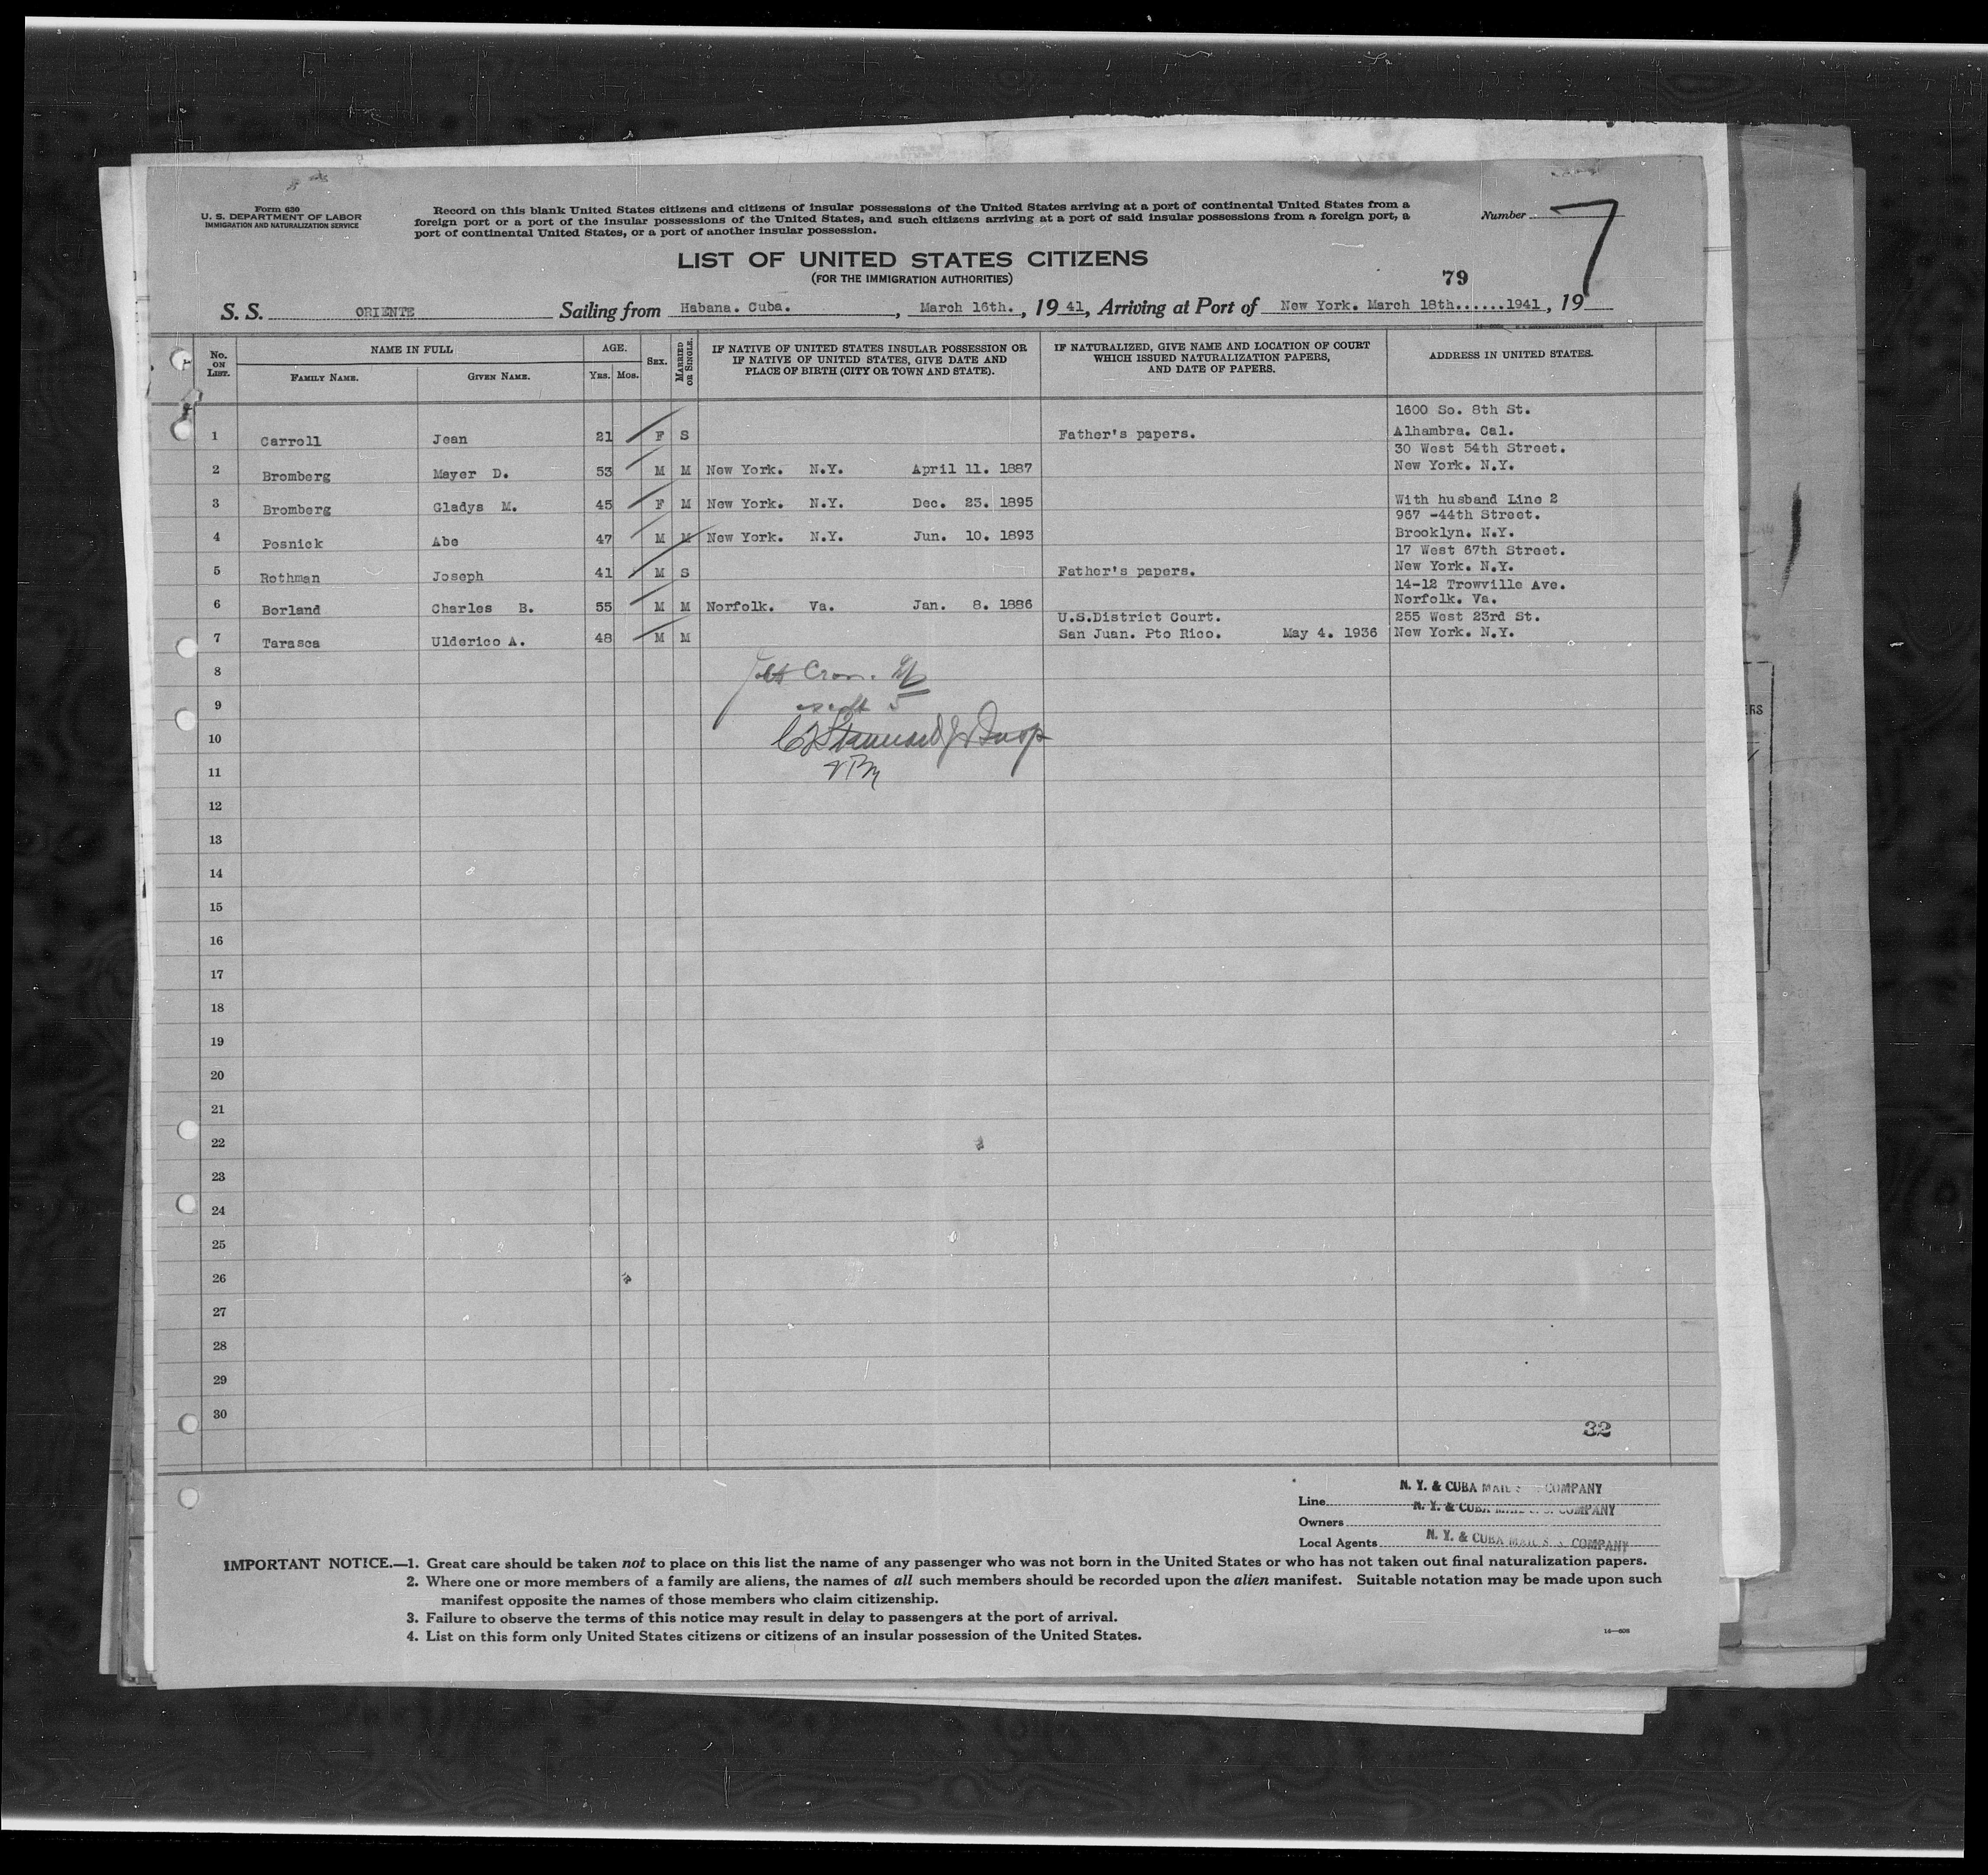 Form 630
U. S. DEPARTMENT OF LABOR
IMMIGRATION AND NATURALIZATION SERVICE
Record on this blank United States citizens and citizens of insular possessions of the United States arriving at a port of continental United States from a
foreign port or a port of the insular possessions of the United States, and such citizens arriving at a port of said insular possessions from a foreign port, a
port of continental United States, or a port of another insular possession.
Number 7
LIST OF UNITED STATES CITIZENS
(FOR THE IMMIGRATION AUTHORITIES)
79
S. S. ORIENTE Sailing from Habana. Cuba. , March 16th. , 19 41, Arriving at Port of New York. March 18th......1941 , 19
No. ON LIST. NAME IN FULL AGE. SEX. MARRIED OR SINGLE. IF NATIVE OF UNITED STATES INSULAR POSSESSION OR IF NATIVE OF UNITED STATES, GIVE DATE AND PLACE OF BIRTH (CITY OR TOWN AND STATE). IF NATURALIZED, GIVE NAME AND LOCATION OF COURT WHICH ISSUED NATURALIZATION PAPERS, AND DATE OF PAPERS. ADDRESS IN UNITED STATES.
FAMILY NAME. GIVEN NAME. YRS. MOS.
1600 So. 8th St.
1 Carroll Jean 21 F S Father's papers. Alhambra. Cal.
30 West 54th Street.
2 Bromberg Mayer D. 53 M M New York. N.Y. April 11. 1887 New York. N.Y.
3 Bromberg Gladys M. 45 F M New York. N.Y. Dec. 23. 1895 With husband Line 2
967 -44th Street.
4 Posnick Abe 47 M M New York. N.Y. Jun. 10. 1893 Brooklyn. N.Y.
17 West 67th Street.
5 Rothman Joseph 41 M S Father's papers. New York. N.Y.
14-12 Trowville Ave.
6 Borland Charles B. 55 M M Norfolk. Va. Jan. 8. 1886 Norfolk. Va.
U.S.District Court. 255 West 23rd St.
7 Tarasca Ulderico A. 48 M M San Juan. Pto Rico. May 4. 1936 New York. N.Y.
8
9
10
11
12
13
14
15
16
17
18
19
20
21
22
23
24
25
26
27
28
29
30
32
Line N. Y. & CUBA MAIL S. COMPANY
Owners N. Y. & CUBA MAIL S. S. COMPANY
Local Agents N. Y. & CUBA MAIL S. S. COMPANY
IMPORTANT NOTICE.—1. Great care should be taken not to place on this list the name of any passenger who was not born in the United States or who has not taken out final naturalization papers.
2. Where one or more members of a family are aliens, the names of all such members should be recorded upon the alien manifest. Suitable notation may be made upon such
manifest opposite the names of those members who claim citizenship.
3. Failure to observe the terms of this notice may result in delay to passengers at the port of arrival.
4. List on this form only United States citizens or citizens of an insular possession of the United States.